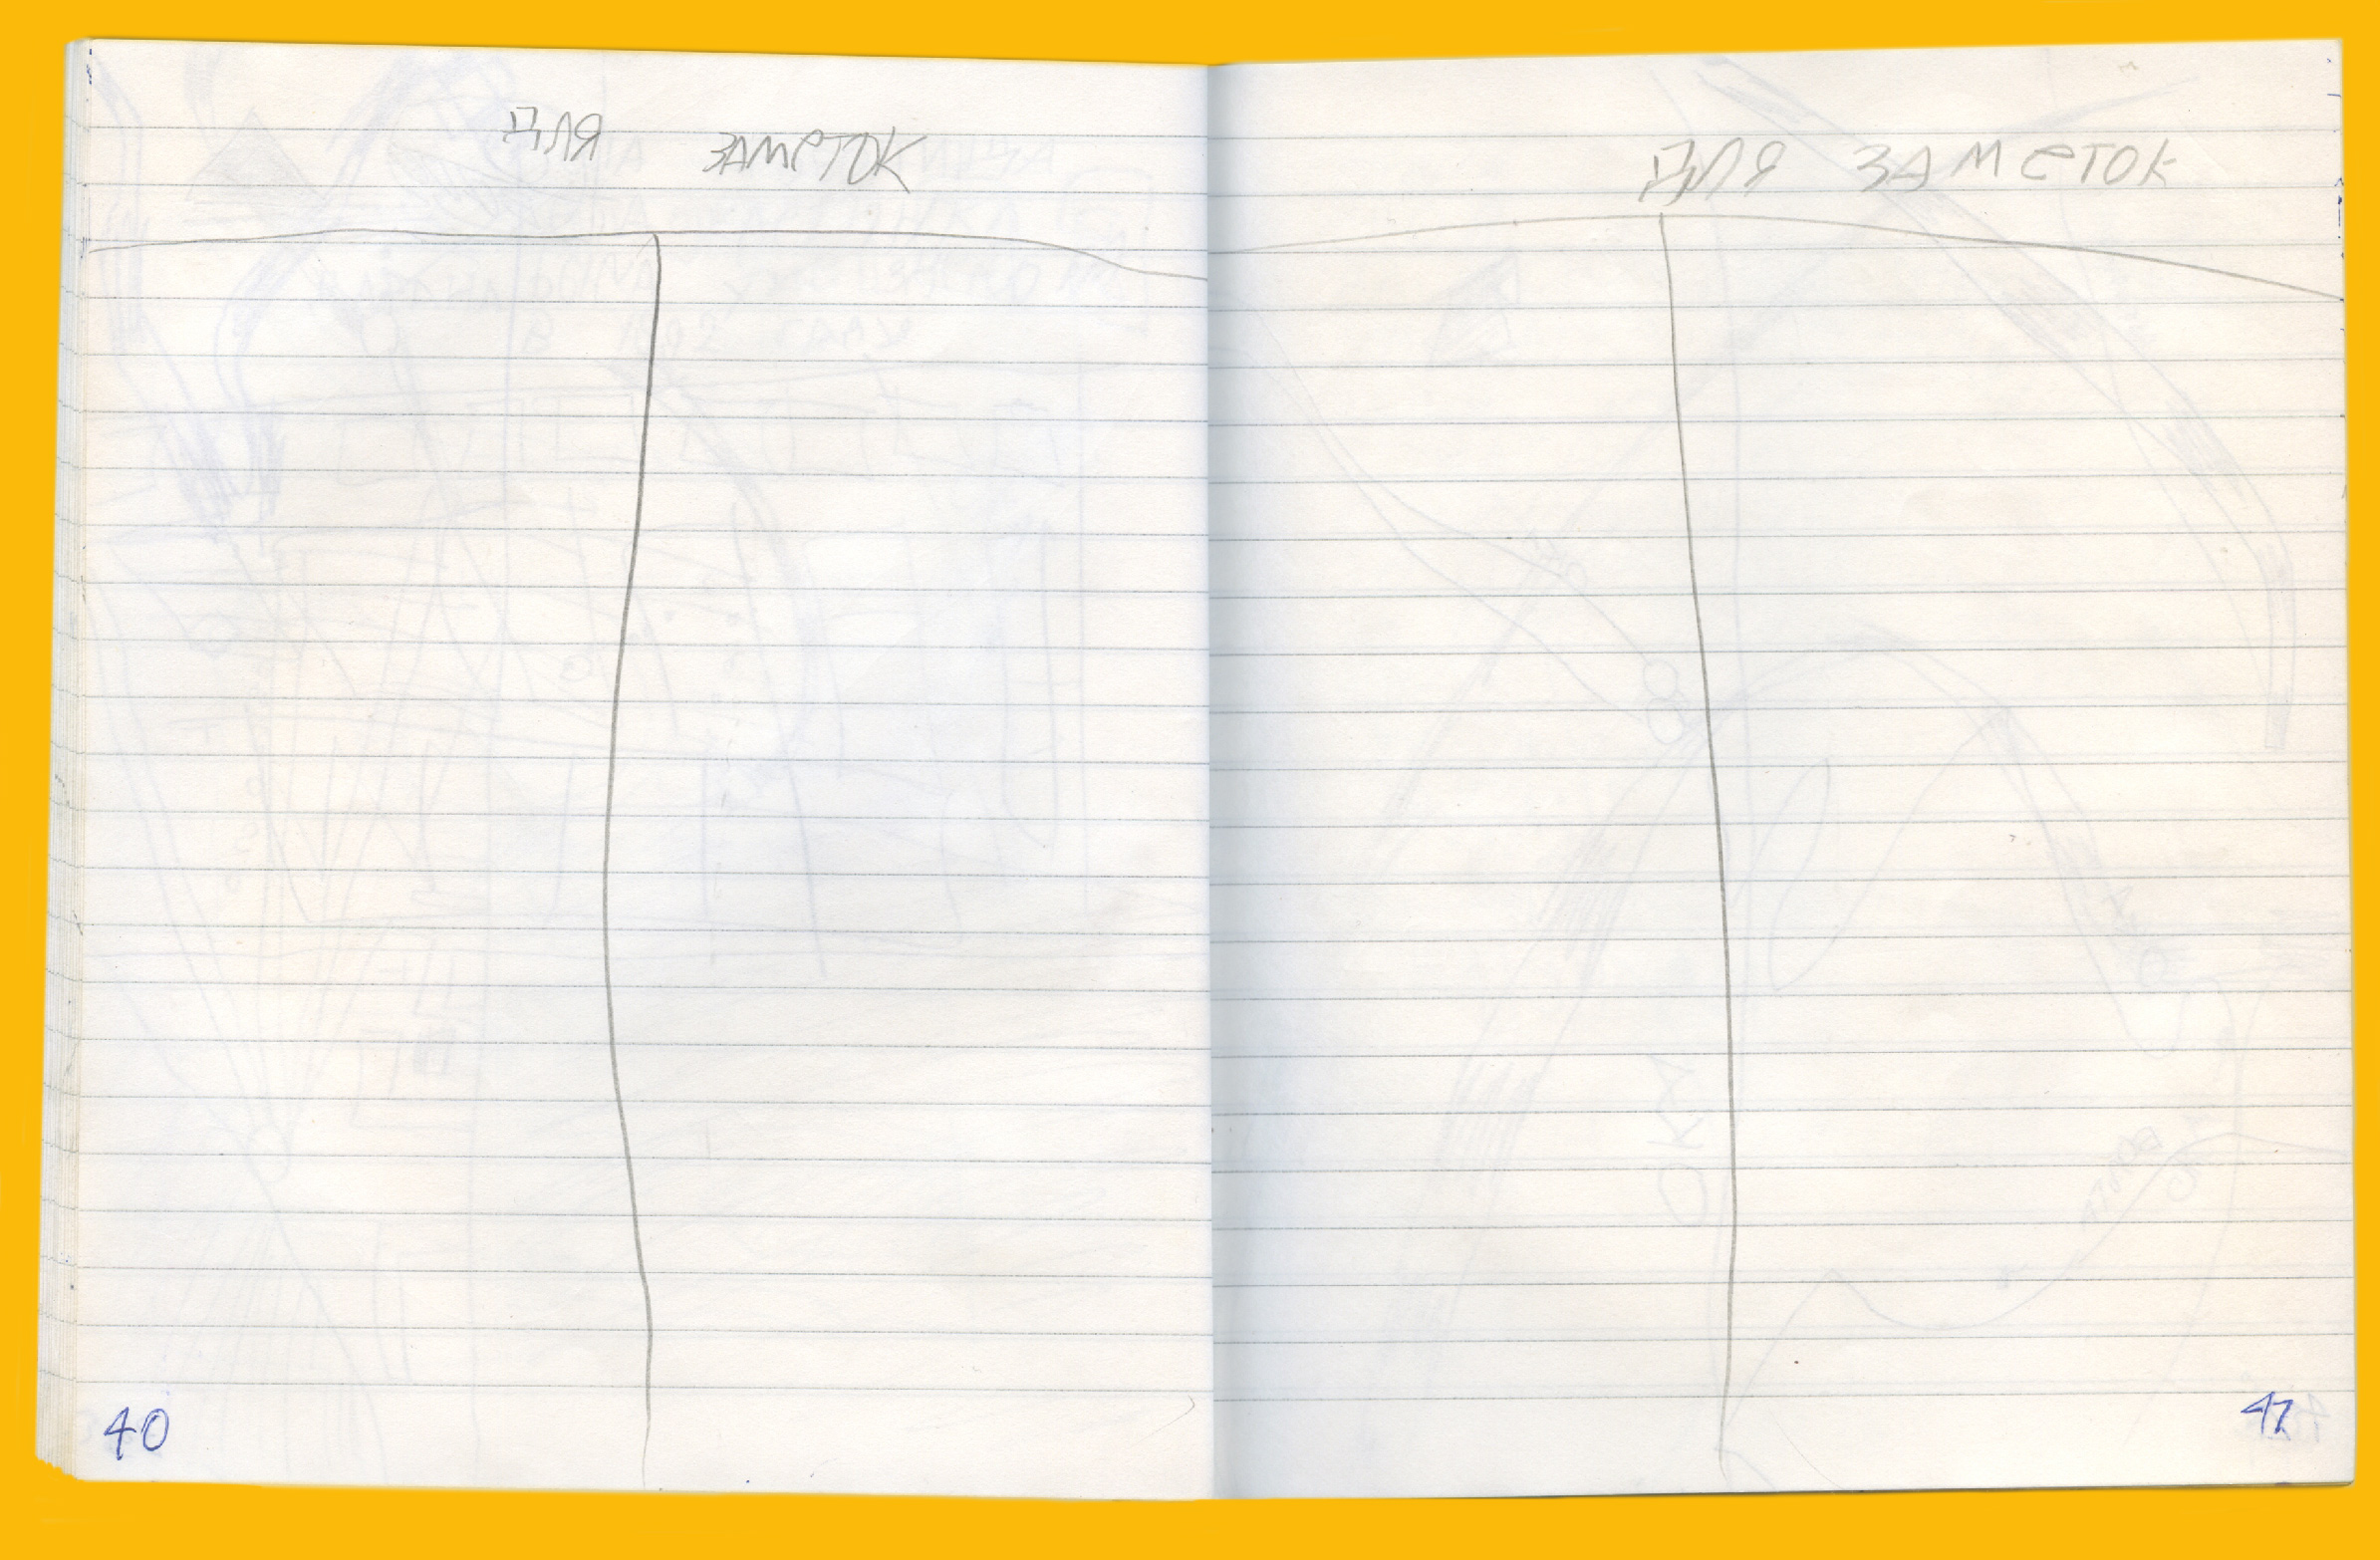 ДЛЯ ЗАМЕТОК
40
ДЛЯ ЗАМЕТОК
41